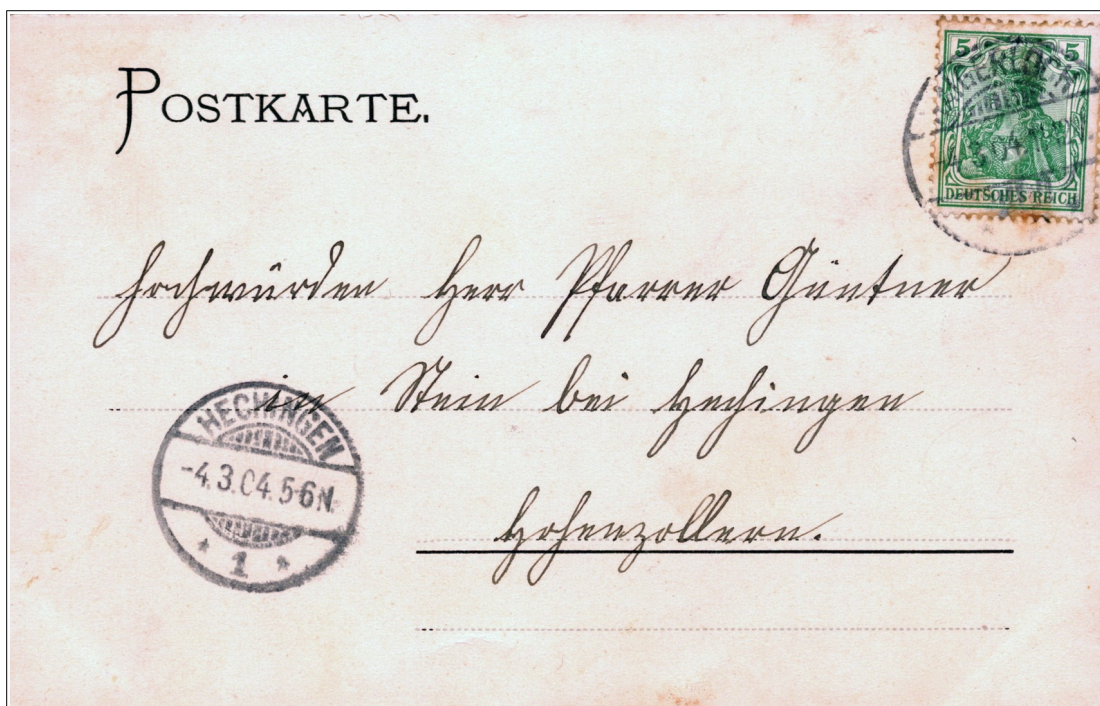 POSTKARTE.
5 5
DEUTSCHES REICH
Hochwürden Herr Pfarrer Güntner
in Stein bei Hechingen
Hohenzollern.
HECHINGEN
-4.3.04.5-6N.
* 1 *